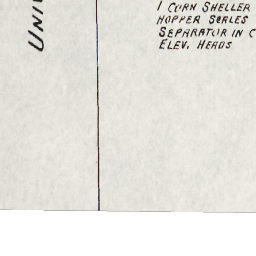 UNIV
1 CORN SHELLER
HOPPER SCALES
SEPARATOR IN C
ELEV. HEADS